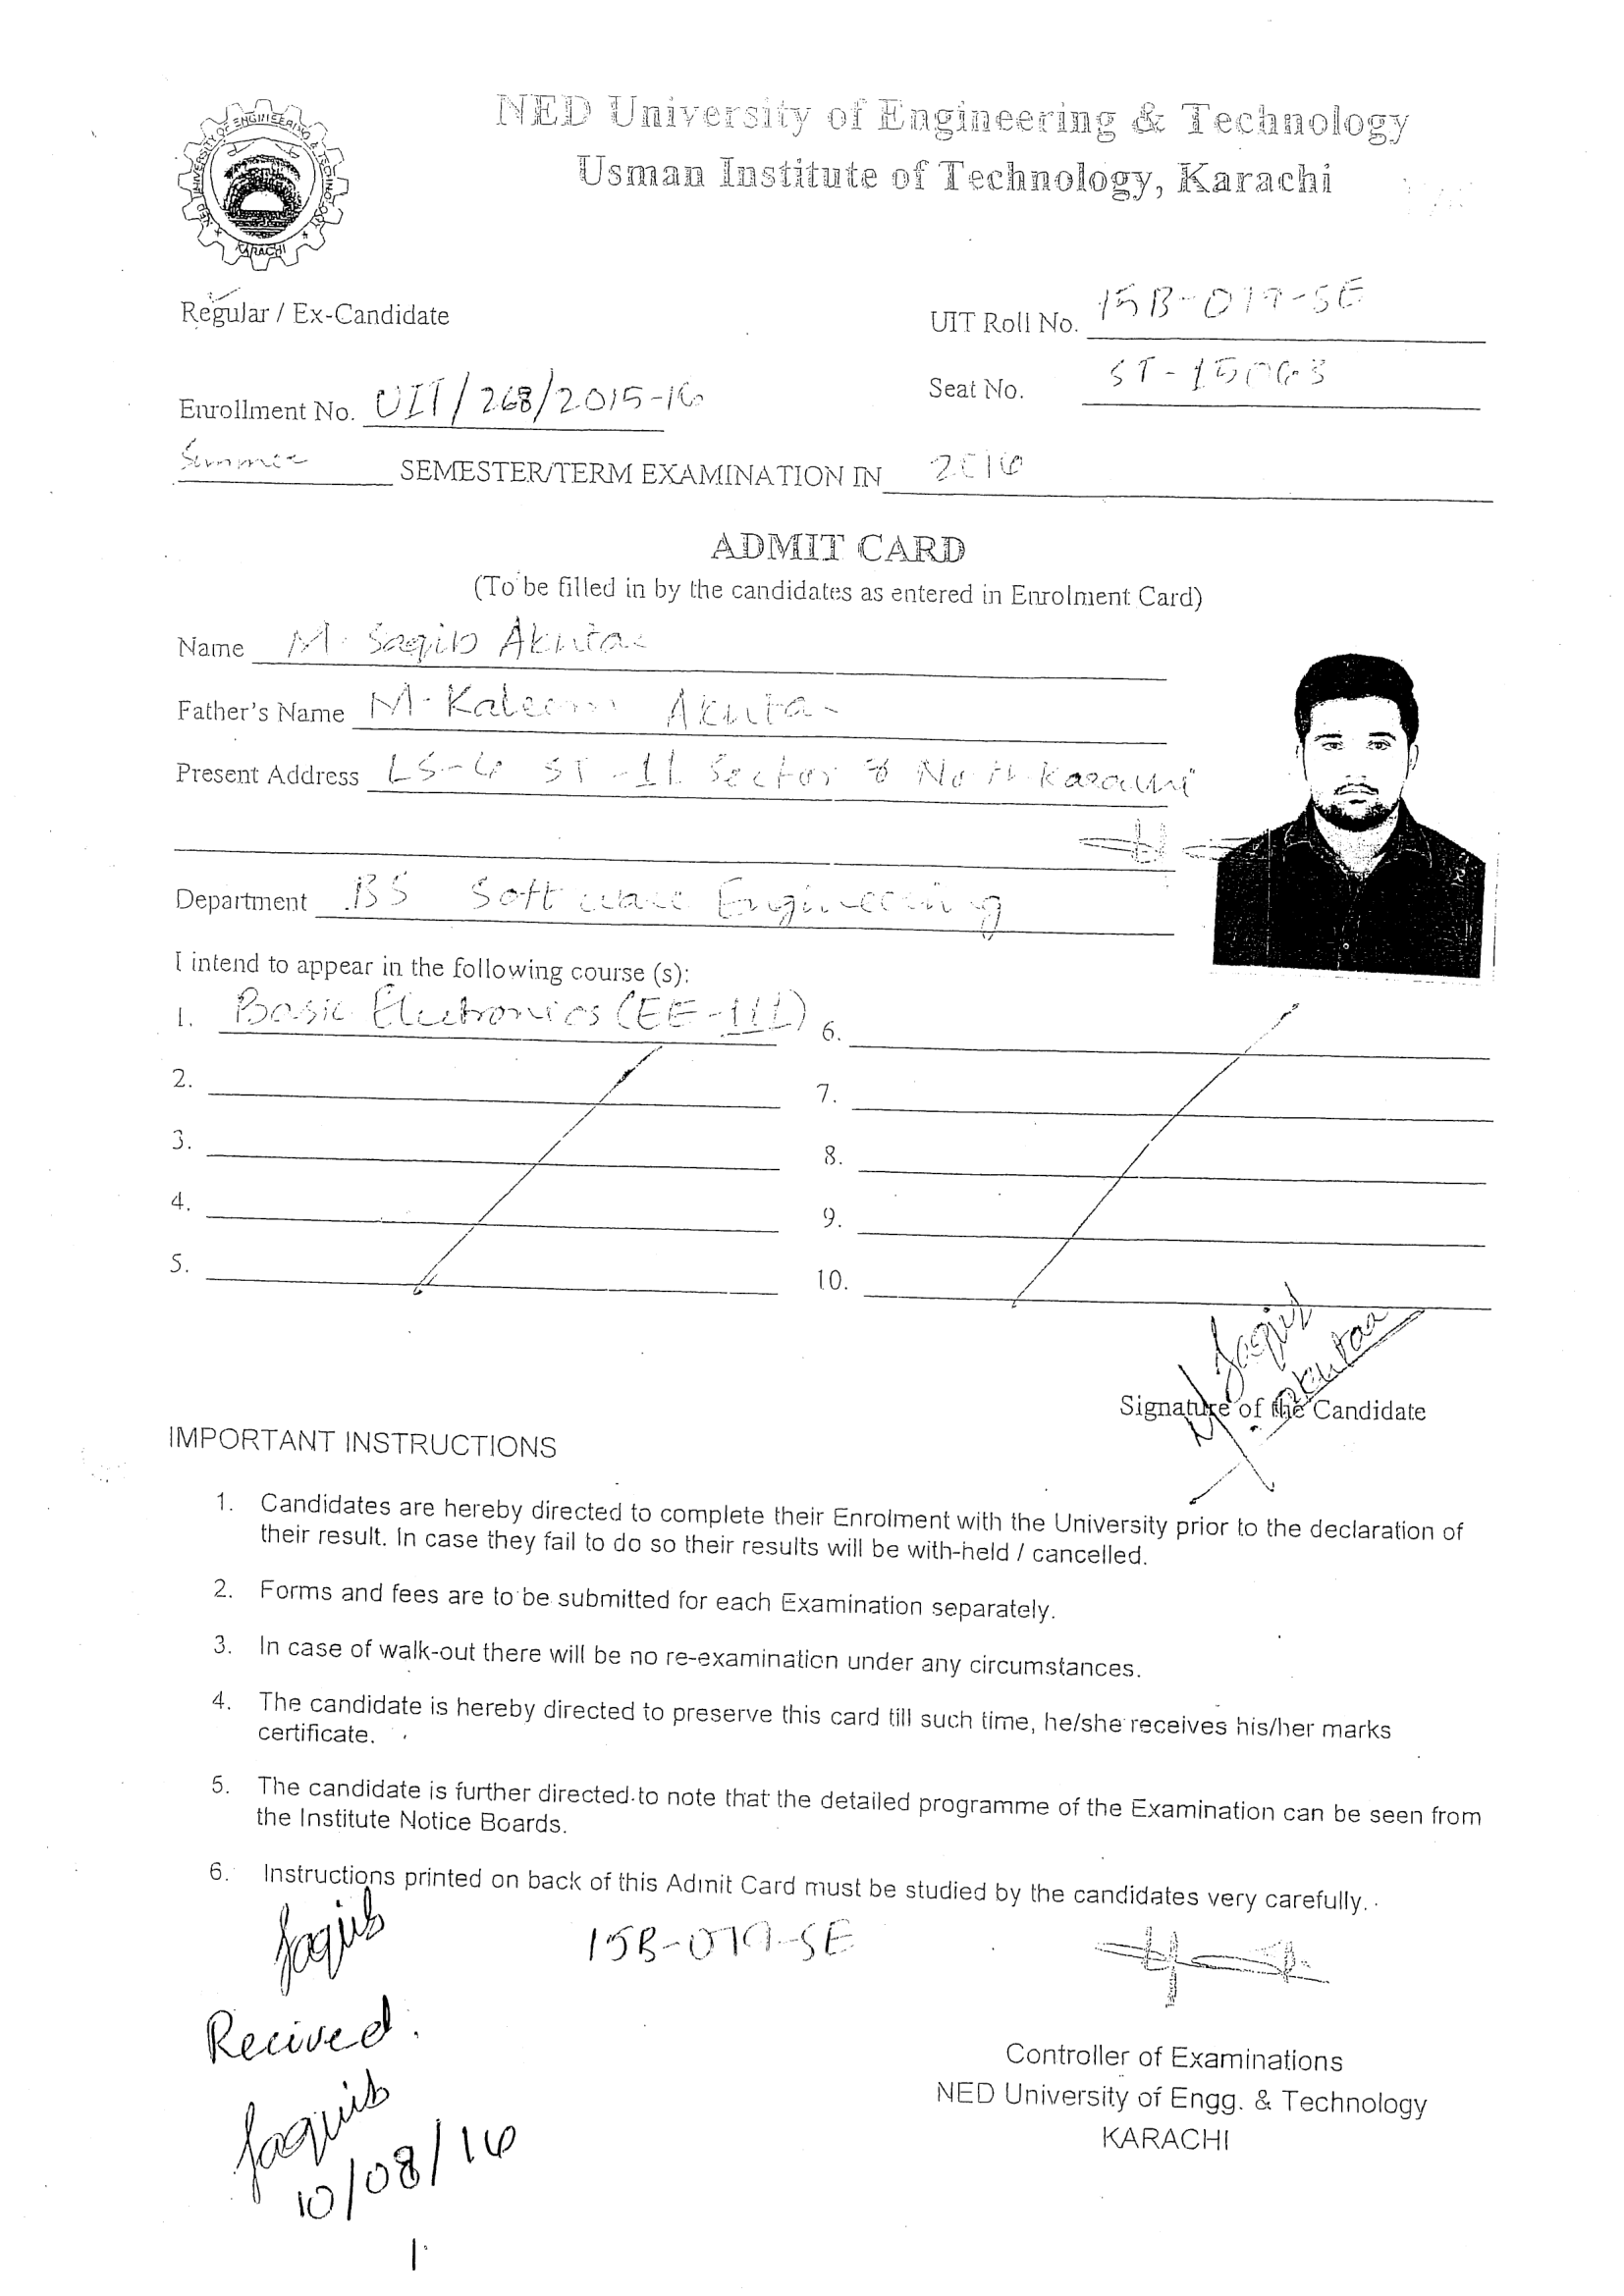 NED University of Engineering & Technology
Usman Institute of Technology, Karachi
NED UNIVERSITY OF ENGINEERING & TECHNOLOGY
KARACHI
Regular / Ex-Candidate
UIT Roll No. 15B-079-SE
Enrollment No. UIT/268/2015-16
Seat No. ST-15063
Summer SEMESTER/TERM EXAMINATION IN 2016
ADMIT CARD
(To be filled in by the candidates as entered in Enrolment Card)
Name M. Saqib Akhtar
Father's Name M. Kaleem Akhtar
Present Address LS-4 ST-11 Sector 8 North Karachi
Department BS Software Engineering
I intend to appear in the following course (s):
1. Basic Electronics (EE-111)
2.
3.
4.
5.
6.
7.
8.
9.
10.
M Saqib
Akhtar
Signature of the Candidate
IMPORTANT INSTRUCTIONS
1. Candidates are hereby directed to complete their Enrolment with the University prior to the declaration of
their result. In case they fail to do so their results will be with-held / cancelled.
2. Forms and fees are to be submitted for each Examination separately.
3. In case of walk-out there will be no re-examination under any circumstances.
4. The candidate is hereby directed to preserve this card till such time, he/she receives his/her marks
certificate.
5. The candidate is further directed to note that the detailed programme of the Examination can be seen from
the Institute Notice Boards.
6. Instructions printed on back of this Admit Card must be studied by the candidates very carefully.
Saquib
15B-079-SE
Recived.
Saquib
10/08/16
Controller of Examinations
NED University of Engg. & Technology
KARACHI